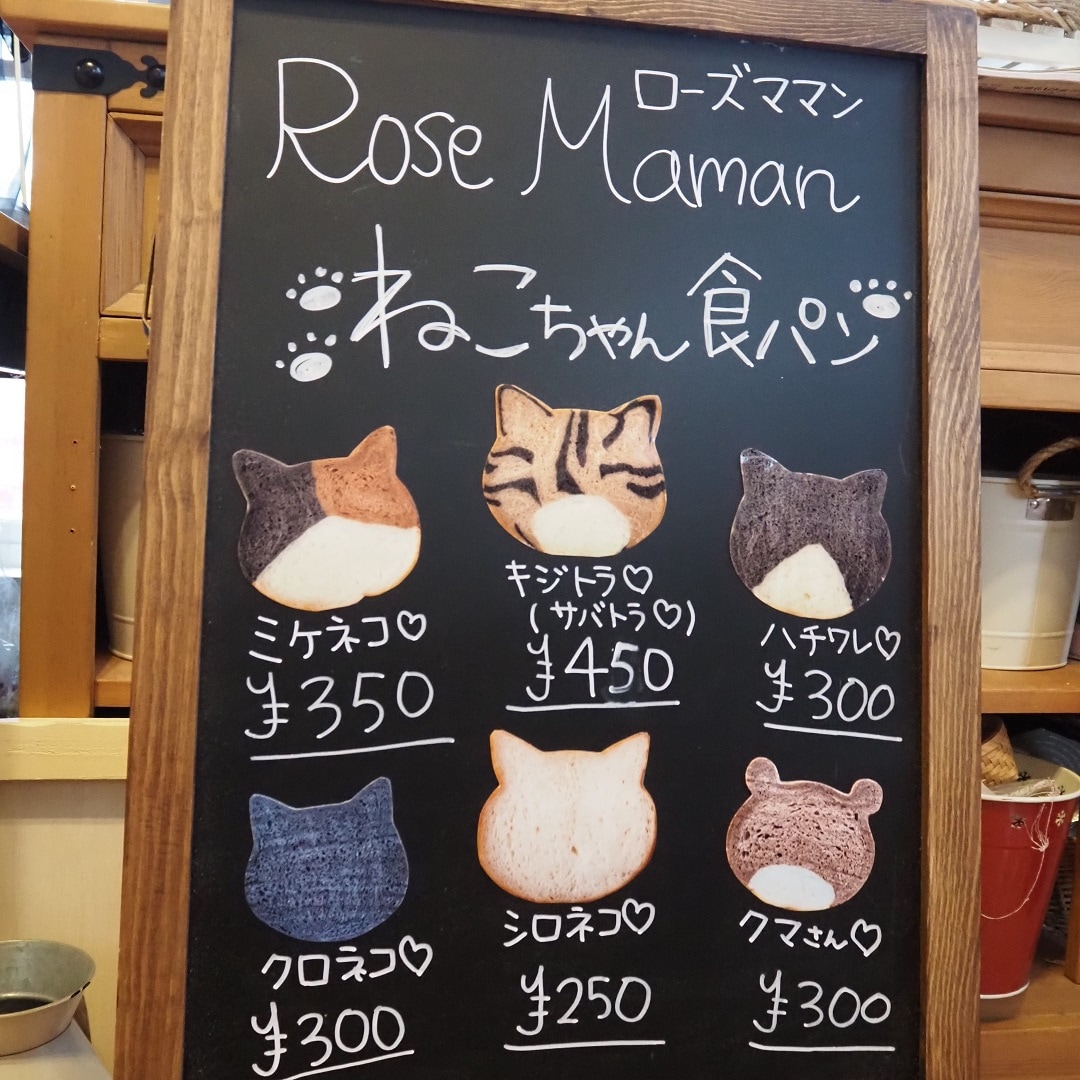 ローズママン
Rose Maman
ねこちゃん食パン
ミケネコ♡
¥350
キジトラ♡
(サバトラ♡)
¥450
ハチワレ♡
¥300
クロネコ♡
¥300
シロネコ♡
¥250
クマさん♡
¥300